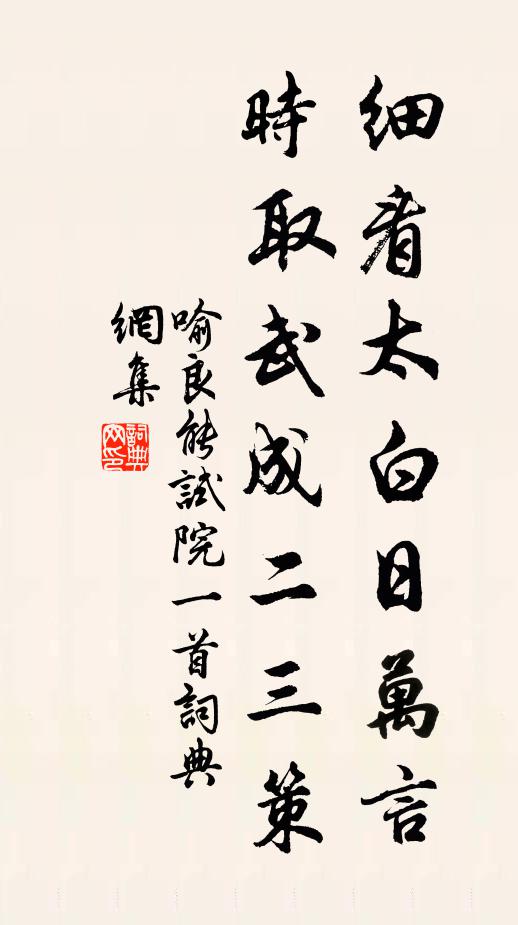 細看太白日萬言
時取武成二三策
喻良能試院一首詞典
網集
詞典
网印